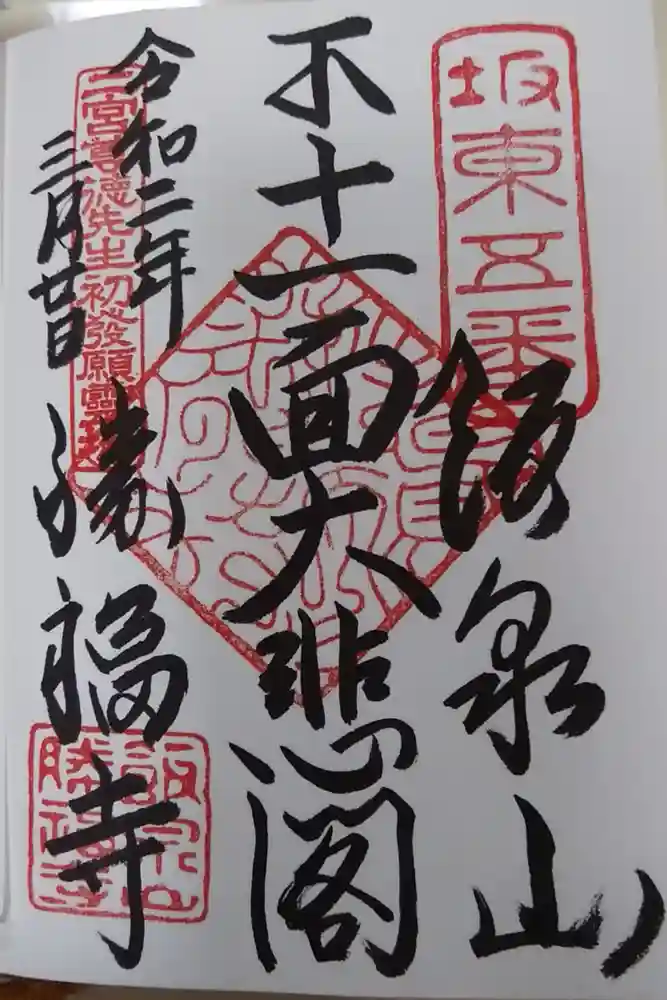 坂東五番
飯泉山
十一面大悲閣
令和二年
三月廿日
二宮尊徳先生初發願
勝福寺
飯泉山
勝福寺